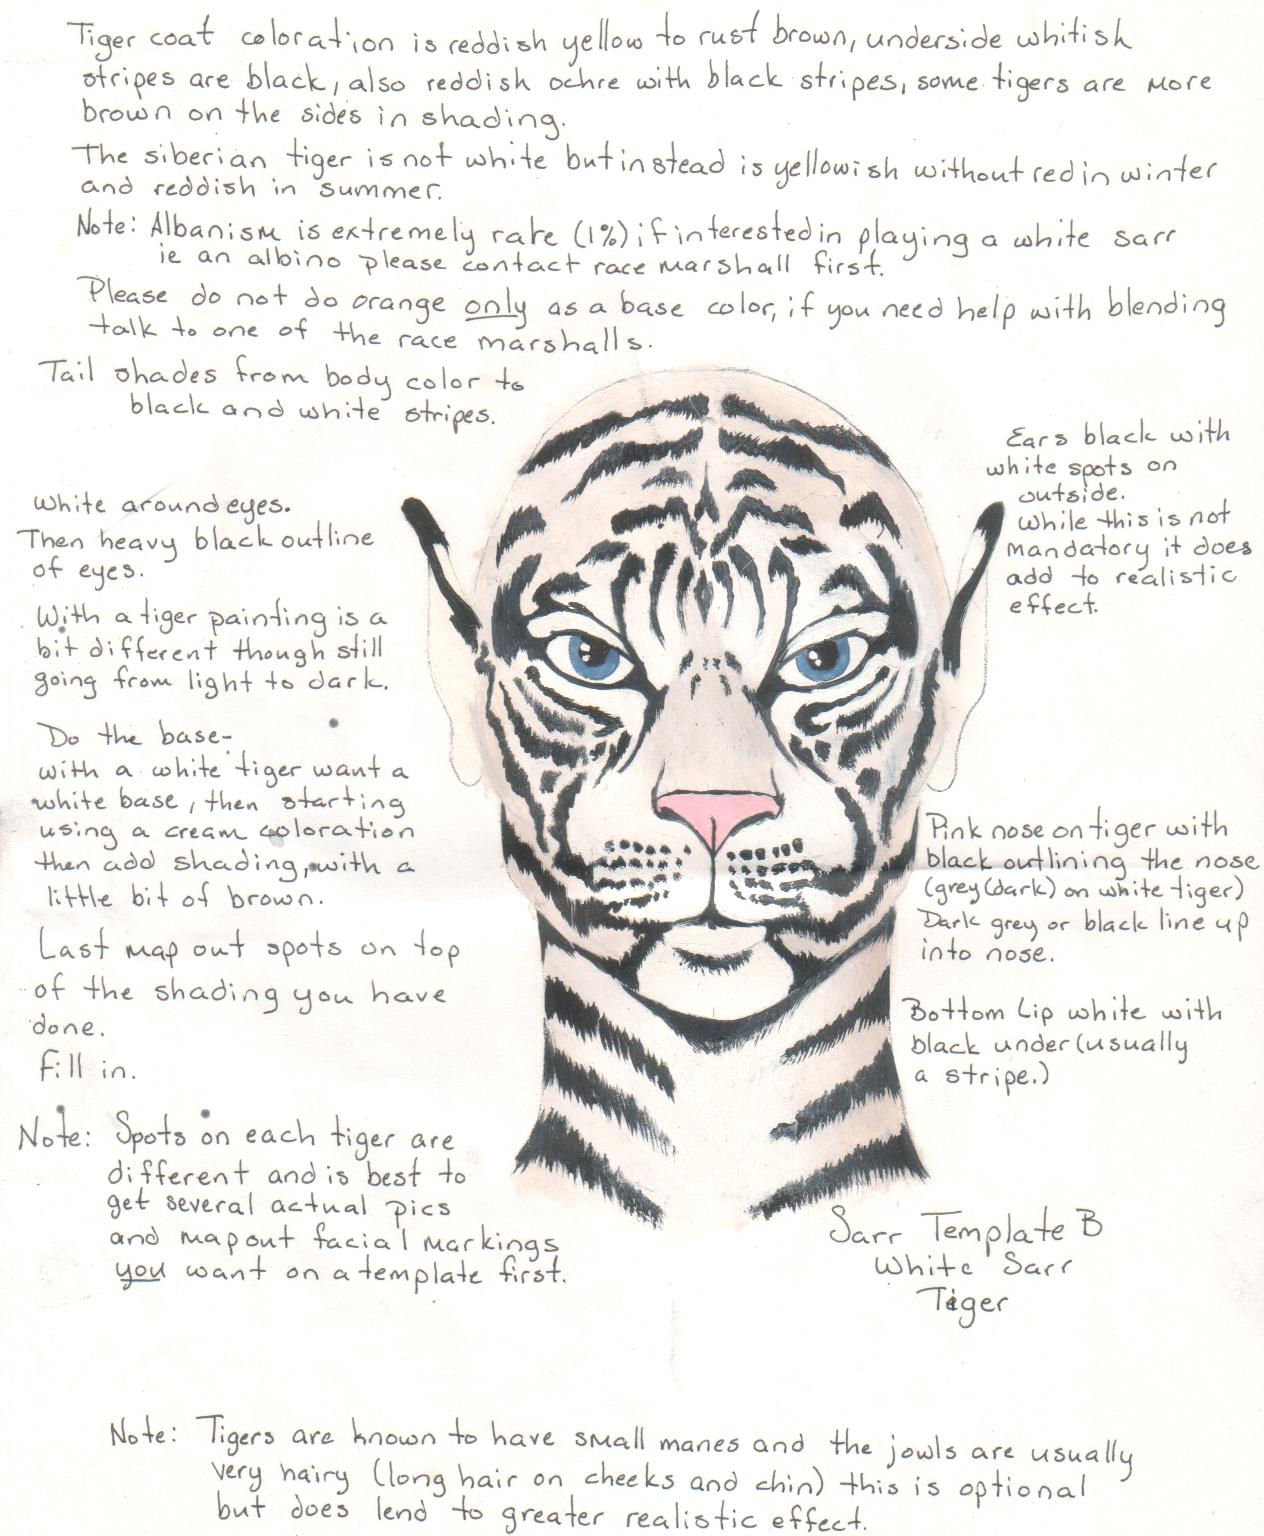 Tiger coat coloration is reddish yellow to rust brown, underside whitish
stripes are black, also reddish ochre with black stripes, some tigers are more
brown on the sides in shading.
The siberian tiger is not white but instead is yellowish without red in winter
and reddish in summer.
Note: Albanism is extremely rare (1%) if interested in playing a white sarr
ie an albino please contact race marshall first.
Please do not do orange only as a base color, if you need help with blending
talk to one of the race marshalls.
Tail shades from body color to
black and white stripes.
Ears black with
white spots on
outside.
While this is not
mandatory it does
add to realistic
effect.
White around eyes.
Then heavy black outline
of eyes.
With a tiger painting is a
bit different though still
going from light to dark.
Do the base-
with a white tiger want a
white base, then starting
using a cream coloration
then add shading, with a
little bit of brown.
Last map out spots on top
of the shading you have
done.
Fill in.
Note: Spots on each tiger are
different and is best to
get several actual pics
and map out facial markings
you want on a template first.
Pink nose on tiger with
black outlining the nose
(grey (dark) on white tiger)
Dark grey or black line up
into nose.
Bottom Lip white with
black under (usually
a stripe.)
Sarr Template B
White Sarr
Tiger
Note: Tigers are known to have small manes and the jowls are usually
very hairy (long hair on cheeks and chin) this is optional
but does lend to greater realistic effect.